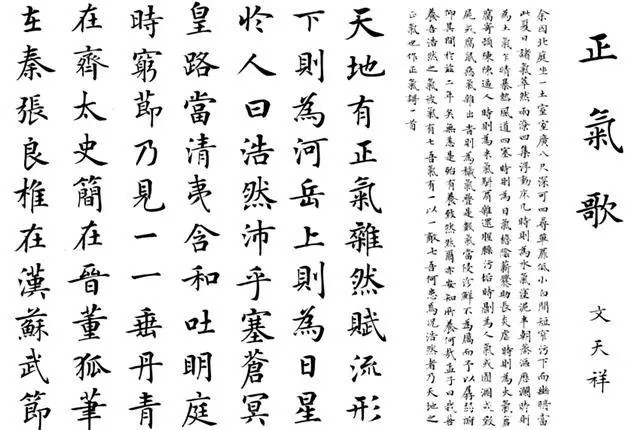 正氣歌
文天祥
余囚北庭坐一土室室廣八尺深可四尋單扉低小白間短窄污下而幽暗當
此夏日諸氣萃然雨潦四集浮動床几時則為水氣塗泥半朝蒸漚歷瀾時則
為土氣乍晴暴熱風道四塞時則為日氣檐陰薪爨助長炎虐時則為火氣倉
腐寄頓陳陳逼人時則為米氣駢肩雜遝腥臊污垢時則為人氣或圊溷或毀
屍或腐鼠惡氣雜出時則為穢氣疊是數氣當侵沴鮮不為厲而予以孱弱俯
仰其間於茲二年矣無恙是殆有養致然然爾亦安知所養何哉孟子曰我善
養吾浩然之氣彼氣有七吾氣有一以一敵七吾何患焉況浩然者乃天地之
正氣也作正氣歌一首
天地有正氣雜然賦流形
下則為河岳上則為日星
於人曰浩然沛乎塞蒼冥
皇路當清夷含和吐明庭
時窮節乃見一一垂丹青
在齊太史簡在晉董狐筆
在秦張良椎在漢蘇武節